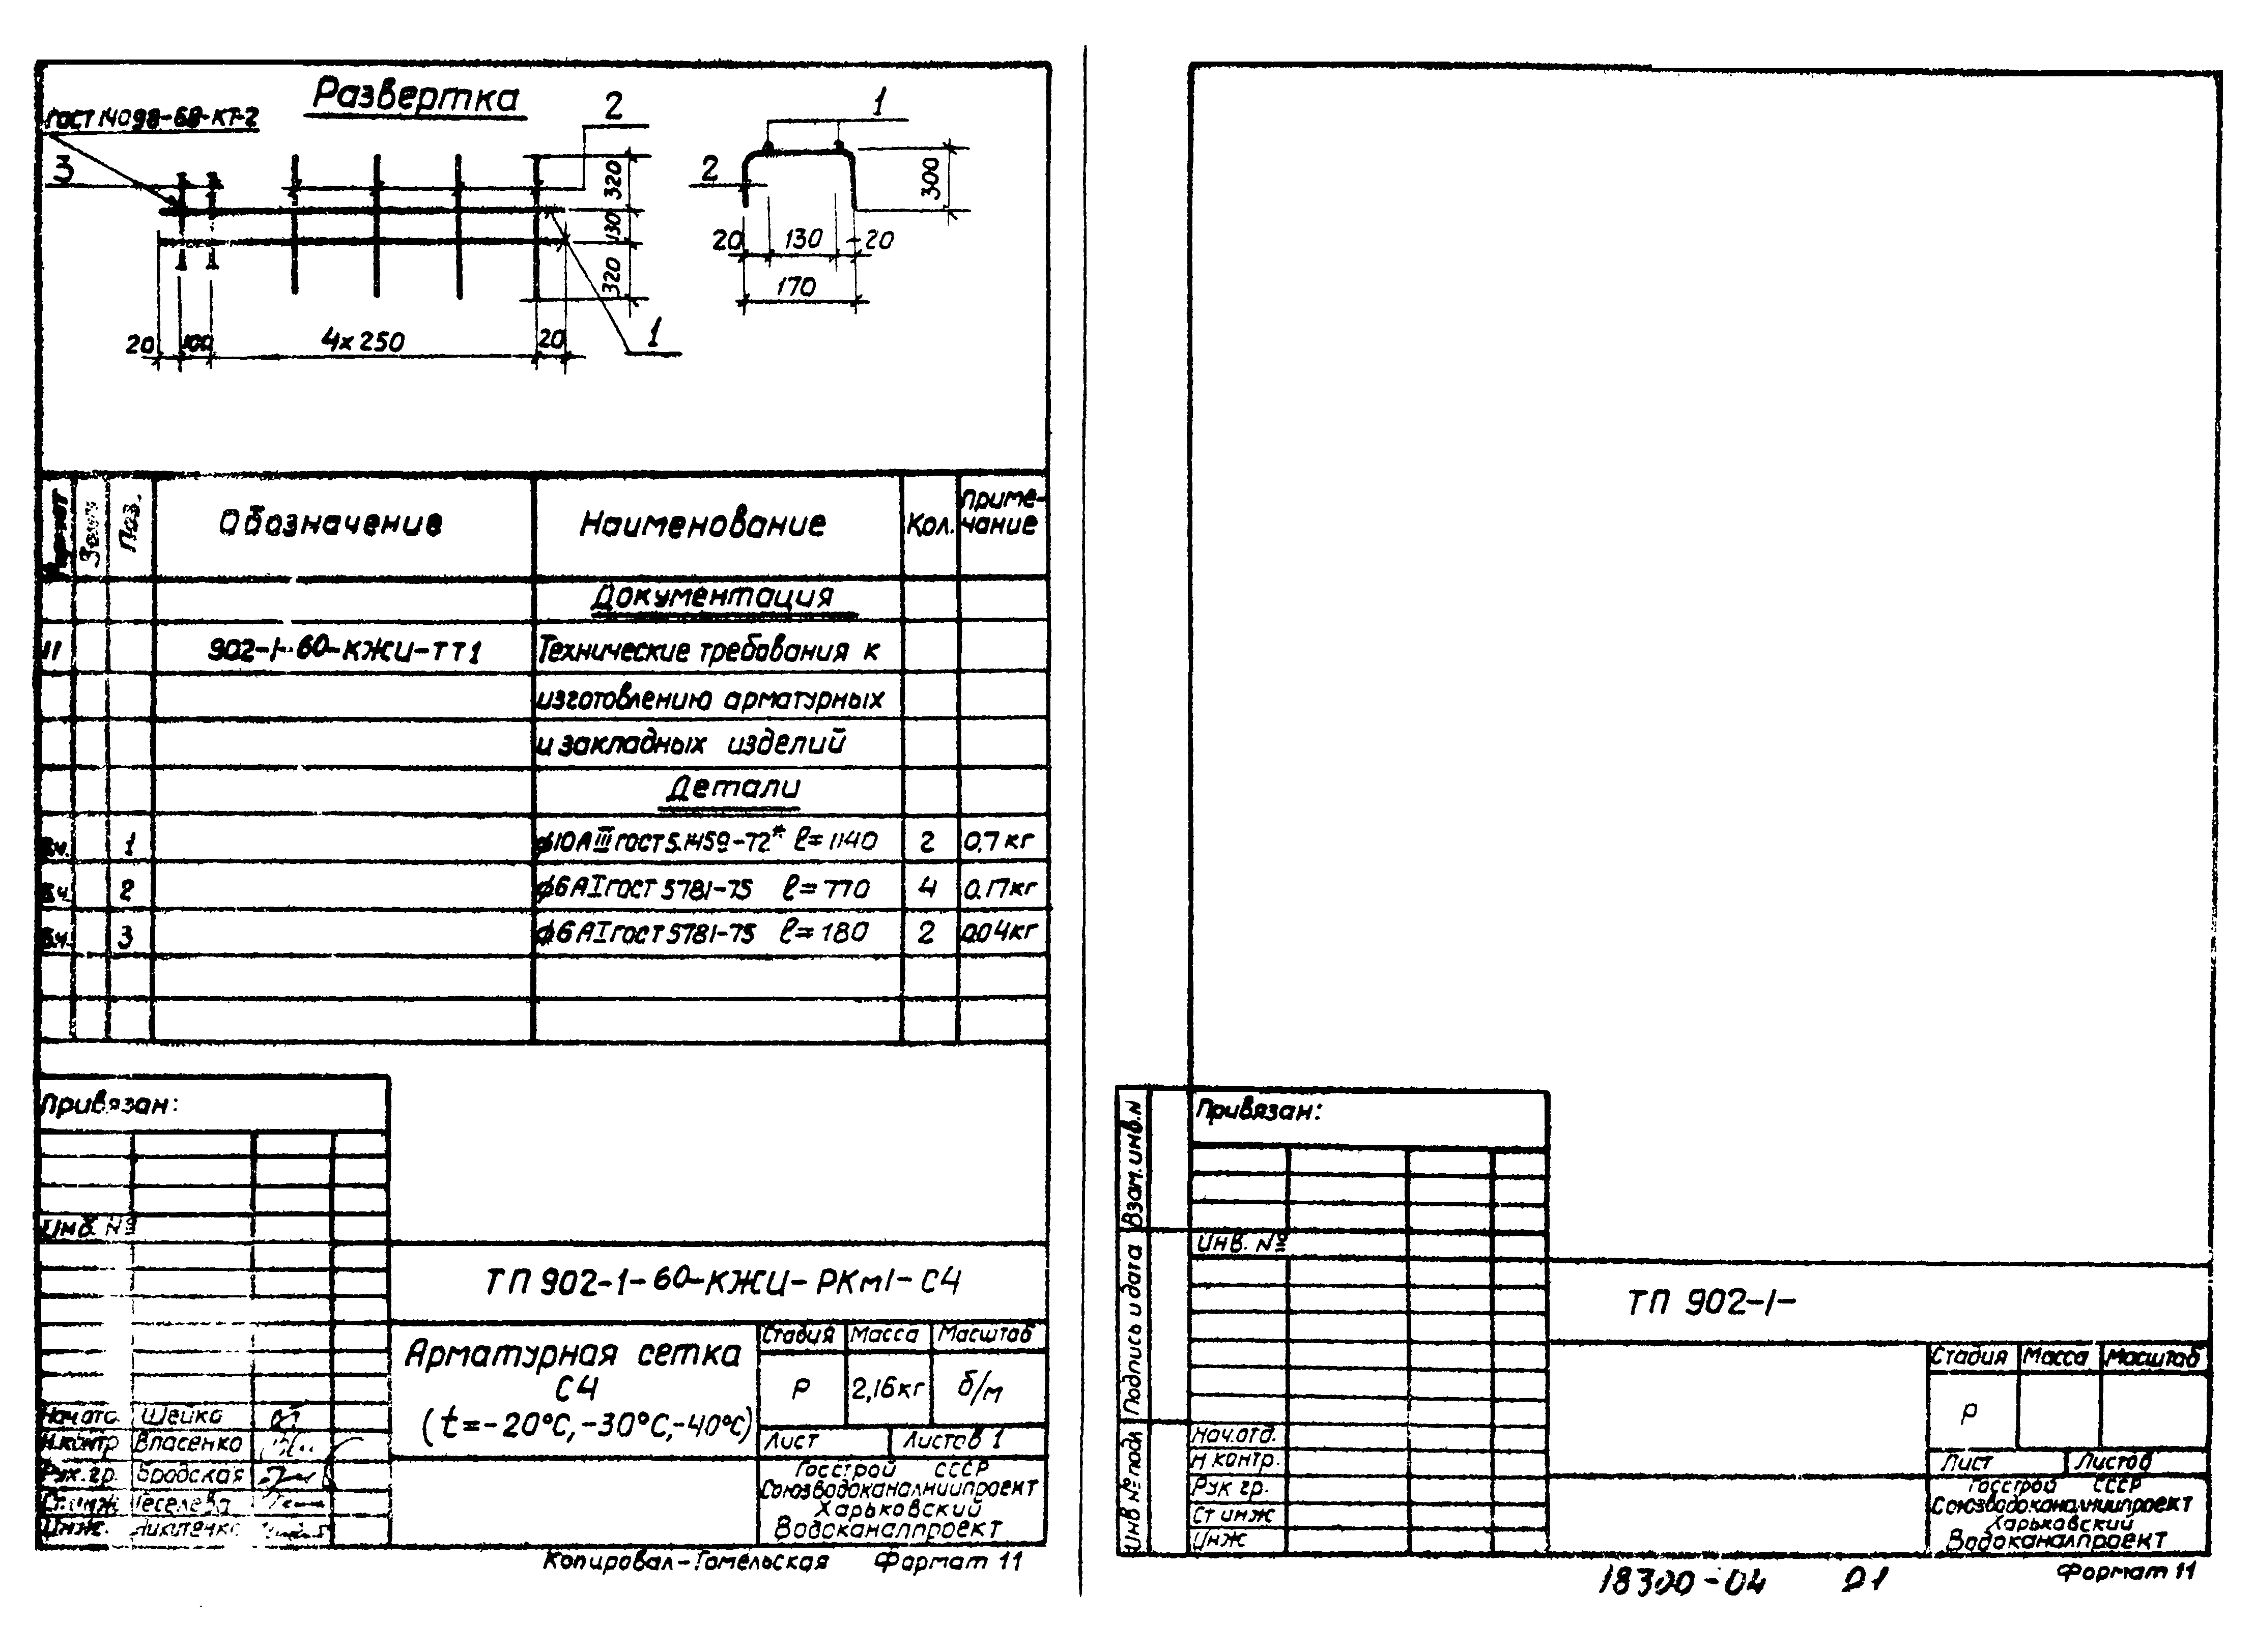 Развертка
ГОСТ 14098-68-КТ-2
3
2
320
130
320
20
100
4х250
20
1
1
2
300
20
130
20
170
Формат
Зона
Поз.
Обозначение
Наименование
Кол.
Приме-
чание
Документация
11 902-1-60-КЖИ-ТТ1 Технические требования к
изготовлению арматурных
и закладных изделий
Детали
Б.ч. 1 ⌀10АIII ГОСТ 5.1459-72* ℓ=1140 2 0,7 кг
Б.ч. 2 ⌀6АI ГОСТ 5781-75 ℓ=770 4 0.17кг
Б.ч. 3 ⌀6АI ГОСТ 5781-75 ℓ=180 2 0.04кг
Привязан:
Инв. №
ТП 902-1-60-КЖИ-РКм1-С4
Арматурная сетка
С4
(t=-20°С,-30°С,-40°С)
Стадия Масса Масштаб
Р 2,16кг б/м
Лист Листов 1
Нач.отд. Шейко
Н.контр Власенко
Рук.гр. Бродская
Ст.инж Геселева
Инж. Никитенко
Госстрой СССР
Союзводоканалниипроект
Харьковский
Водоканалпроект
Копировал-Гомельская Формат 11
Взам.инв.N
Подпись и дата
Инв № подл
Привязан:
Инв. №
ТП 902-1-
Стадия Масса Масштаб
Р
Лист Листов
Нач.отд.
Н контр.
Рук гр.
Ст инж
Инж
Госстрой СССР
Союзводоканалниипроект
Харьковский
Водоканалпроект
Формат 11
18300-04 21